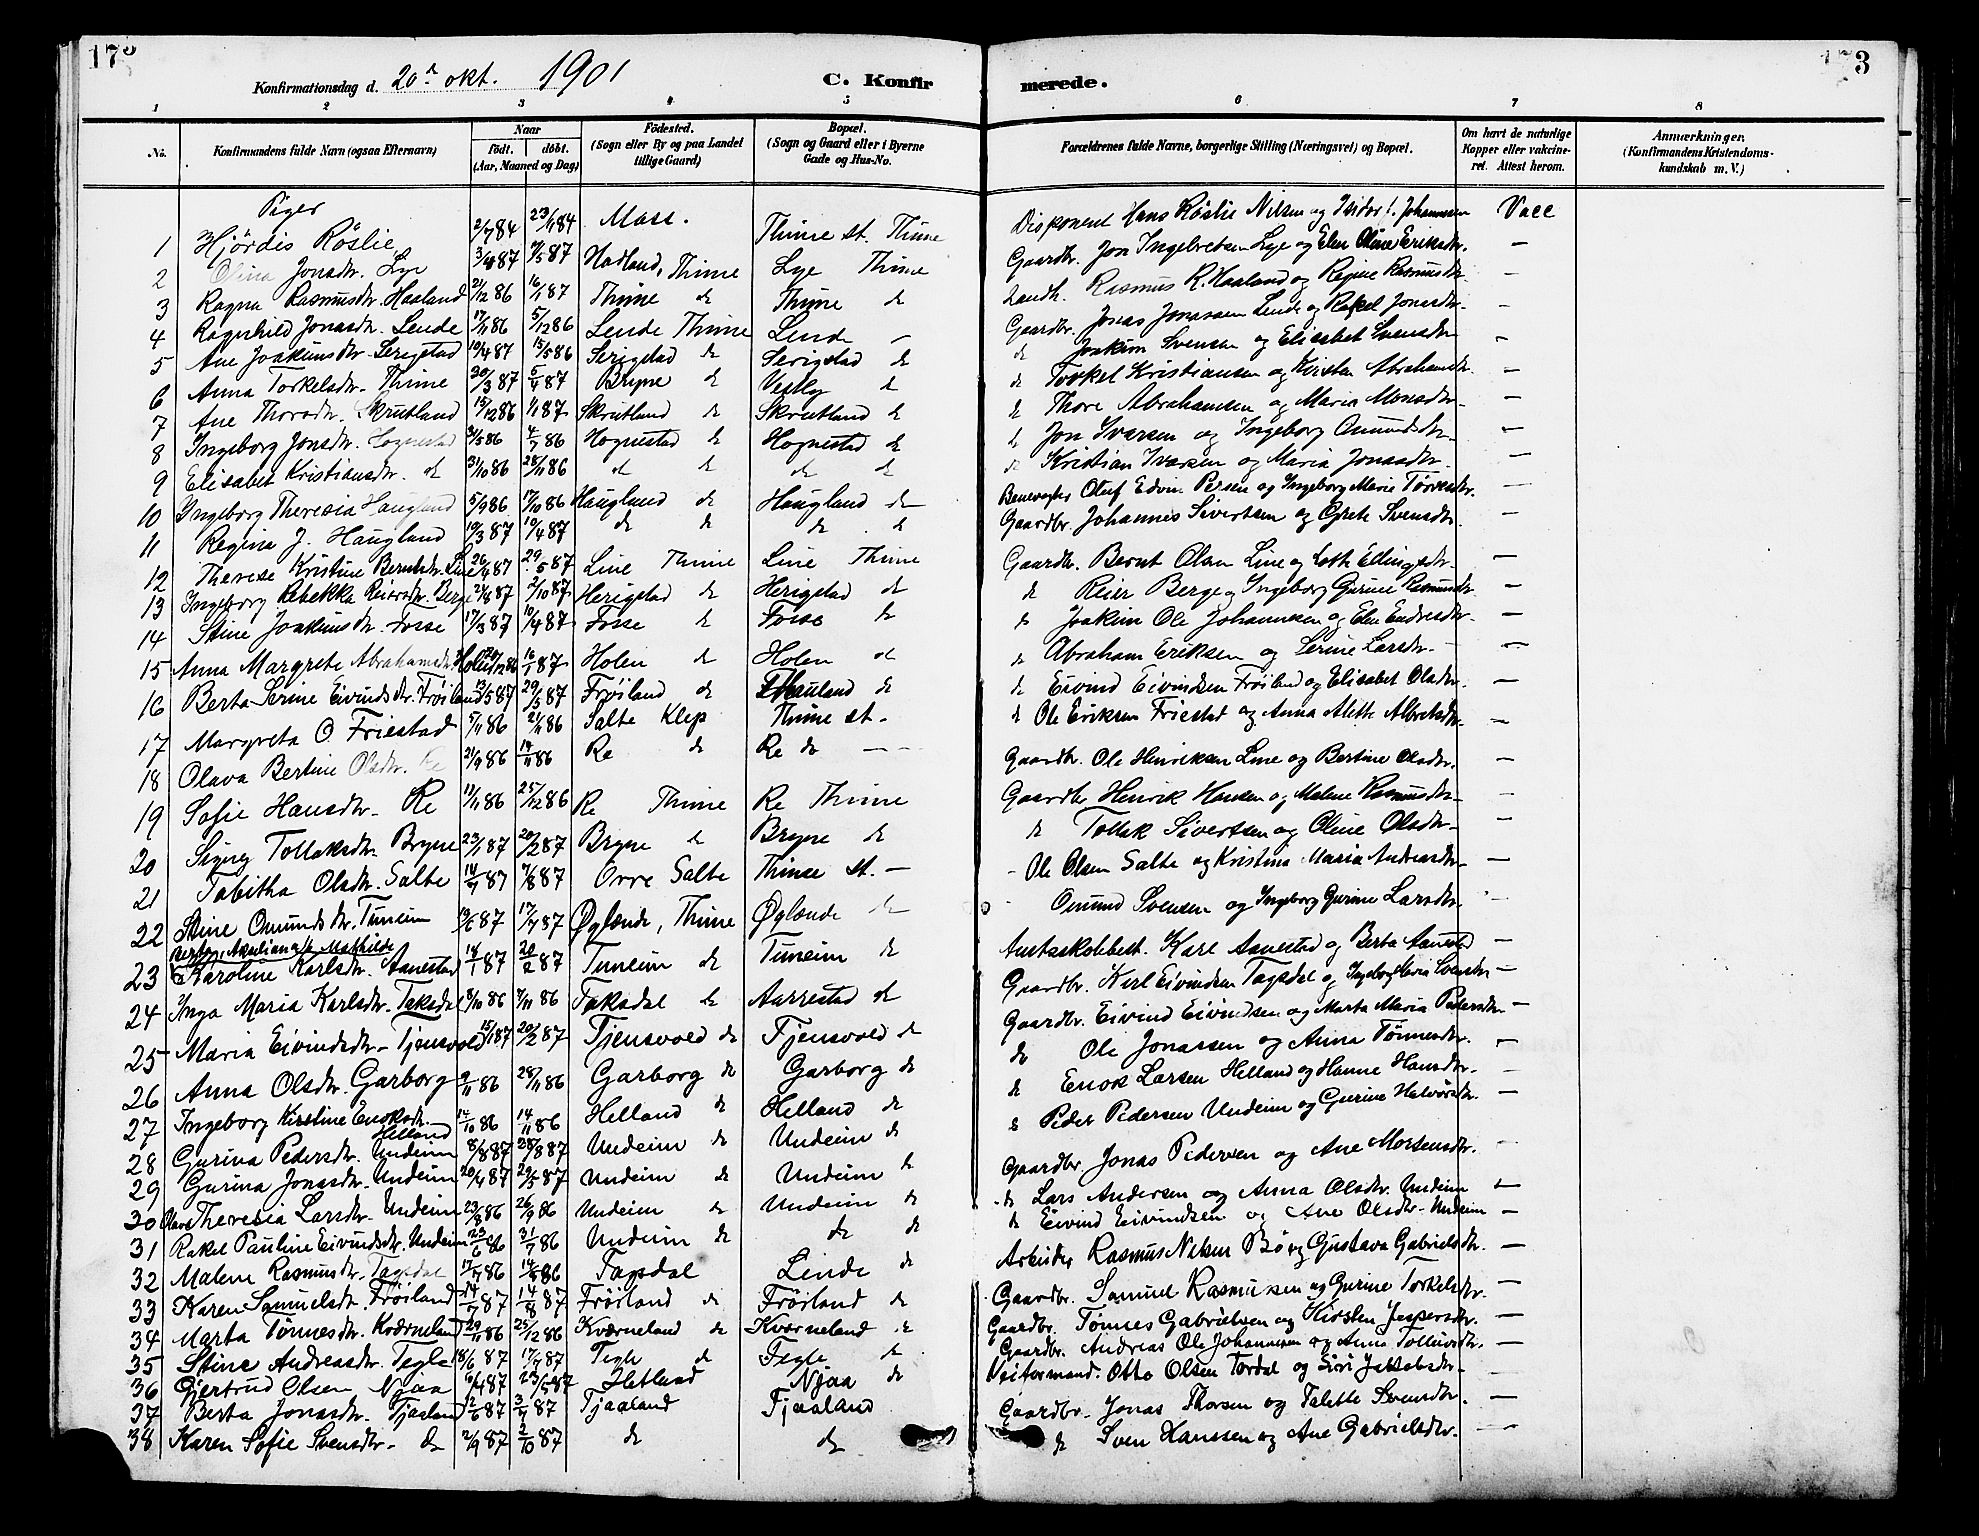 173
173
Konfirmationsdag d. 20de okt. 1901
C. Konfirmerede.
1 2 3 4 5 6 7 8
No.
Konfirmandens fulde Navn (ogsaa Efternavn)
Naar
födt. döbt.
(Aar, Maaned og Dag)
Födested.
(Sogn eller By og paa Landet
tillige Gaard)
Bopæl.
(Sogn og Gaard eller i Byerne
Gade og Hus-No.
Forældrenes fulde Navne, borgerlige Stilling (Næringsvei) og Bopæl.
Om havt de naturlige
Kopper eller vakcine-
ret. Attest herom.
Anmærkninger.
(Konfirmandens Kristendoms-
kundskab m. V.)
Piger
1 Hjördis Röslie 2/7 84 23/11 84 Moss. Thime st. Thime Disponent Hans Röslie Nilsen og Johannesen Vacc
2 Olina Jonsdtr. Lye 87 87 Hadland, Thime Lye Thime Gaardbr. Jon Ingebretsen Lye og Elen Oline Eriksdtr. —
3 Ragna Rasmusdtr. Haaland 21/12 86 16/1 87 Thime do Thime do Landh. Rasmus R. Haaland og Regine Rasmusdtr. —
4 Ragnhild Jonasdtr. Lende 17/11 86 5/12 86 Lende Thime Lende — Gaardbr. Jonas Jonassen Lende og Rakel Jonasdtr. —
5 Ane Joakimsdtr. Serigstad 10/4 87 15/5 86 Serigstad do Serigstad do do Joakim Svensen og Elisabet Svensdtr. —
6 Anna Torkelsdtr. Thime 20/3 87 5/4 87 Bryne do Vestly do do Torkel Kristiansen og Kirsten Abrahamsdtr. —
7 Ane Thorsdtr. Skrutland 15/12 86 1/1 87 Skrutland do Skrutland do do Thore Abrahamsen og Maria Monsdtr. —
8 Ingeborg Jonsdtr. Hognestad 31/5 86 4/7 86 Hognestad do Hognestad do do Jon Ivarsen og Ingeborg Omundsdtr. —
9 Elisabet Kristiansdtr. do 31/10 86 28/11 86 do do do do do Kristian Ivarsen og Maria Jonasdtr. —
10 Ingeborg Theresia Haugland 5/9 86 17/10 86 Haugland do Haugland do Banevogter Oluf Edvin Persen og Ingeborg Marie —
11 Regina J. Haugland 19/3 87 10/4 87 do do do do Gaardbr. Johannes Sivertsen og Grete Svensdtr. —
12 Therese Kristine Berntsdtr. Line 26/4 87 29/5 87 Line Thime Line Thime Gaardbr. Bernt Olsen Line og Lotte Ellingsdtr. —
13 Ingeborg Rebekka Reiersdtr. Berge 21/8 87 2/10 87 Herigstad do Herigstad do do Reier Berge og Ingeborg Gurine Rasmusdtr. —
14 Stine Joakimsdtr. Fosse 17/3 87 10/4 87 Fosse do Fosse do do Joakim Ole Johannesen og Elen Endresdtr. —
15 Anna Margrete Abrahamsdtr. Holen 86 16/1 87 Holen do Holen do do Abraham Eriksen og Serine Larsdtr. —
16 Berta Serine Eivindsdtr. Fröiland 13/5 87 29/5 87 Fröiland do do do Eivind Eivindsen Fröiland og Elisabet Olsdtr. —
17 Margreta O. Friestad 5/11 86 21/11 86 Salte Klep Thime st. do Ole Eriksen Friestad og Anna Alette Albretsdtr. —
18 Olava Bertine Olsdtr. Re 21/9 86 14/11 86 Re do Re do — Gaardbr. Ole Henriksen Line og Bertine Olsdtr. —
19 Sofie Hansdtr. Re 19/11 86 25/12 86 Re Thime Re Thime Gaardbr. Henrik Hansen og Malene Rasmusdtr. —
20 Signy Tollaksdtr. Bryne 23/1 87 20/2 87 Bryne do Bryne do do Tollak Sivertsen og Oline Olsdtr. —
21 Tabitha Olsdtr. Salte 14/7 87 7/8 87 Orre Salte Thime st. — - Ole Olsen Salte og Kristina Maria Andreasdtr. —
22 Stine Omundsdtr. Tuneim 19/6 87 17/7 87 Øglænde, Thime Øglænde do - Omund Svensen og Ingeborg Gurine Larsdtr.
23 Karoline Karlsdtr. Aanestad Mathilde 14/1 87 20/2 87 Tuneim do Tuneim do Karl Aanestad og Berta Aanestad —
24 Inga Maria Karlsdtr. Taksdal 8/10 86 7/11 86 Taksdal do Aarrestad do Gaardbr. Karl Eivindsen Tagsdal og Ingeborg Maria Svensdtr. —
25 Maria Eivindsdtr. Tjensvold 15/1 87 20/2 87 Tjensvold do Tjensvold do Gaardbr. Eivind Eivindsen og Marta Maria Pedersdtr. —
26 Anna Olsdtr. Garborg 9/11 86 28/11 86 Garborg do Garborg do do Ole Jonassen og Anna Tönnesdtr. —
27 Ingeborg Kirstine Enoksdtr. Helland 14/10 86 14/11 86 Helland do Helland do do Enok Larsen Helland og Hanne Hansdtr. —
28 Gurina Pedersdtr. Undeim 8/8 87 28/8 87 Undeim do Undeim do do Peder Pedersen Undeim og Gurine Halvorsdtr. —
29 Gurina Jonasdtr. Undeim 20/4 87 29/5 87 Undeim do Undeim do Gaardbr. Jonas Pedersen og Ane Mortensdtr. —
30 Olava Theresia Larsdtr. Undeim 23/8 86 26/9 86 Undeim do Undeim do do Lars Andersen og Anna Olsdtr. Undeim —
31 Rakel Pauline Eivindsdtr. Undeim 23/6 86 31/7 86 Undeim do do do do Eivind Eivindsen og Ane Olsdtr. Undeim —
32 Malene Rasmusdtr. Tagsdal 17/7 86 14/8 86 Tagsdal Lende do Arbeider Rasmus Nilsen Börg Gustava Gabrielsdtr. —
33 Karen Samuelsdtr. Fröiland 24/7 87 14/8 87 Fröiland do Fröiland do Gaardbr. Samuel Rasmussen og Gurine Torkelsdtr. —
34 Marta Tönnesdtr. Kværneland 29/11 86 25/12 86 Kværneland do Kværneland do Gaardbr. Tönnes Gabrielsen og Kirsten Jespersdtr. —
35 Stine Andreasdtr. Tegle 18/6 87 17/7 87 Tegle do Tegle do Gaardbr. Andreas Ole Johannesen og Anna —
36 Gjertrud Olsen Njaa 9/4 87 23/5 87 Hetland Njaa do Otto Olsen Tordal og Siri Jakobsdtr. —
37 Berta Jonasdtr. Tjaaland 2/6 87 3/7 87 Tjaaland Tjaaland Gaardbr. Jonas Thorsen og Talette Svensdtr. —
38 Karen Sofie Svensdtr. do 2/9 87 2/10 87 do do do Sven Hanssen og Ane Gabrielsdtr. —